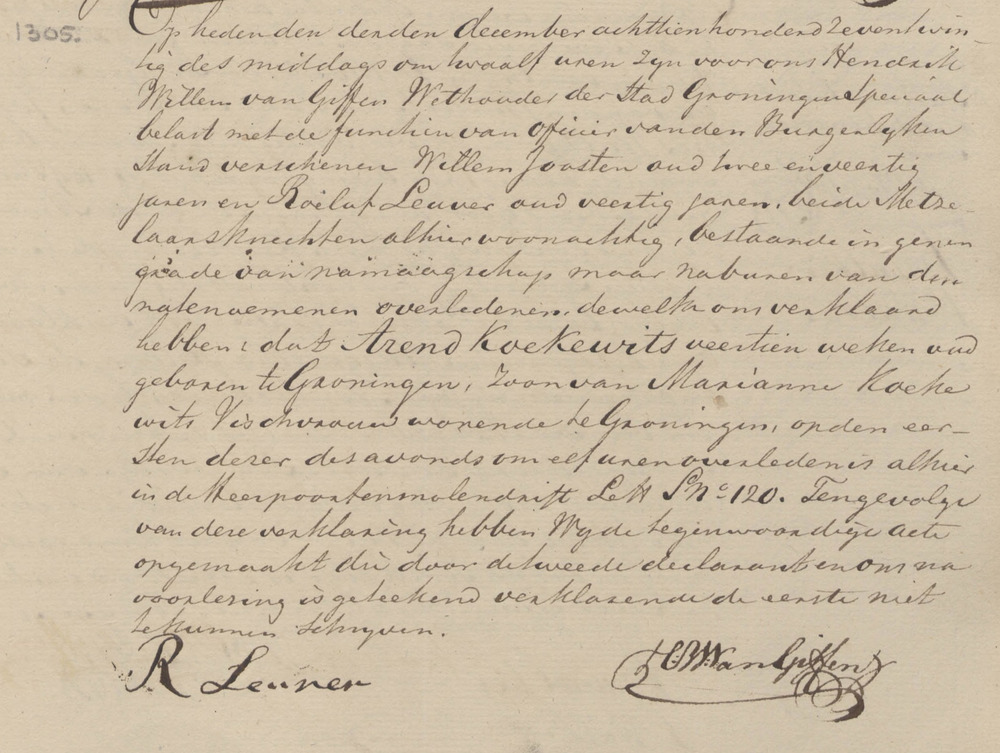 1305.
Op heden den derden december achttienhonderd zeventwin-
tig des middags om twaalf uren zyn voor ons Hendrik
Willem van Giffen Wethouder der Stad Groningen Speciaal
belast met de functien van officier van den Burgerlyken
Stand verschenen Willem Joosten oud twee en veertig
jaren en Roeluf Leuver oud veertig jaren, beide Metze-
laarsknechten alhier woonachtig, bestaande in genen
grade van namaagschap maar naburen van den
natenoemenen overledenen, dewelke ons verklaard
hebben: dat Arend Koekewits veertien weken oud
geboren te Groningen, Zoon van Marianne Koeke
wits Vischvrouw wonende te Groningen, op den eer-
sten dezer des avonds om elf uren overleden is alhier
in de Heerpoortenmolendrift Lett S No 120. Tengevolge
van deze verklaring hebben Wy de tegenwoordige acte
opgemaakt die door de tweede declarant en ons na
voorlezing is geteekend verklarende de eerste niet
te kunnen schryven.
R Leuver
van Giffen